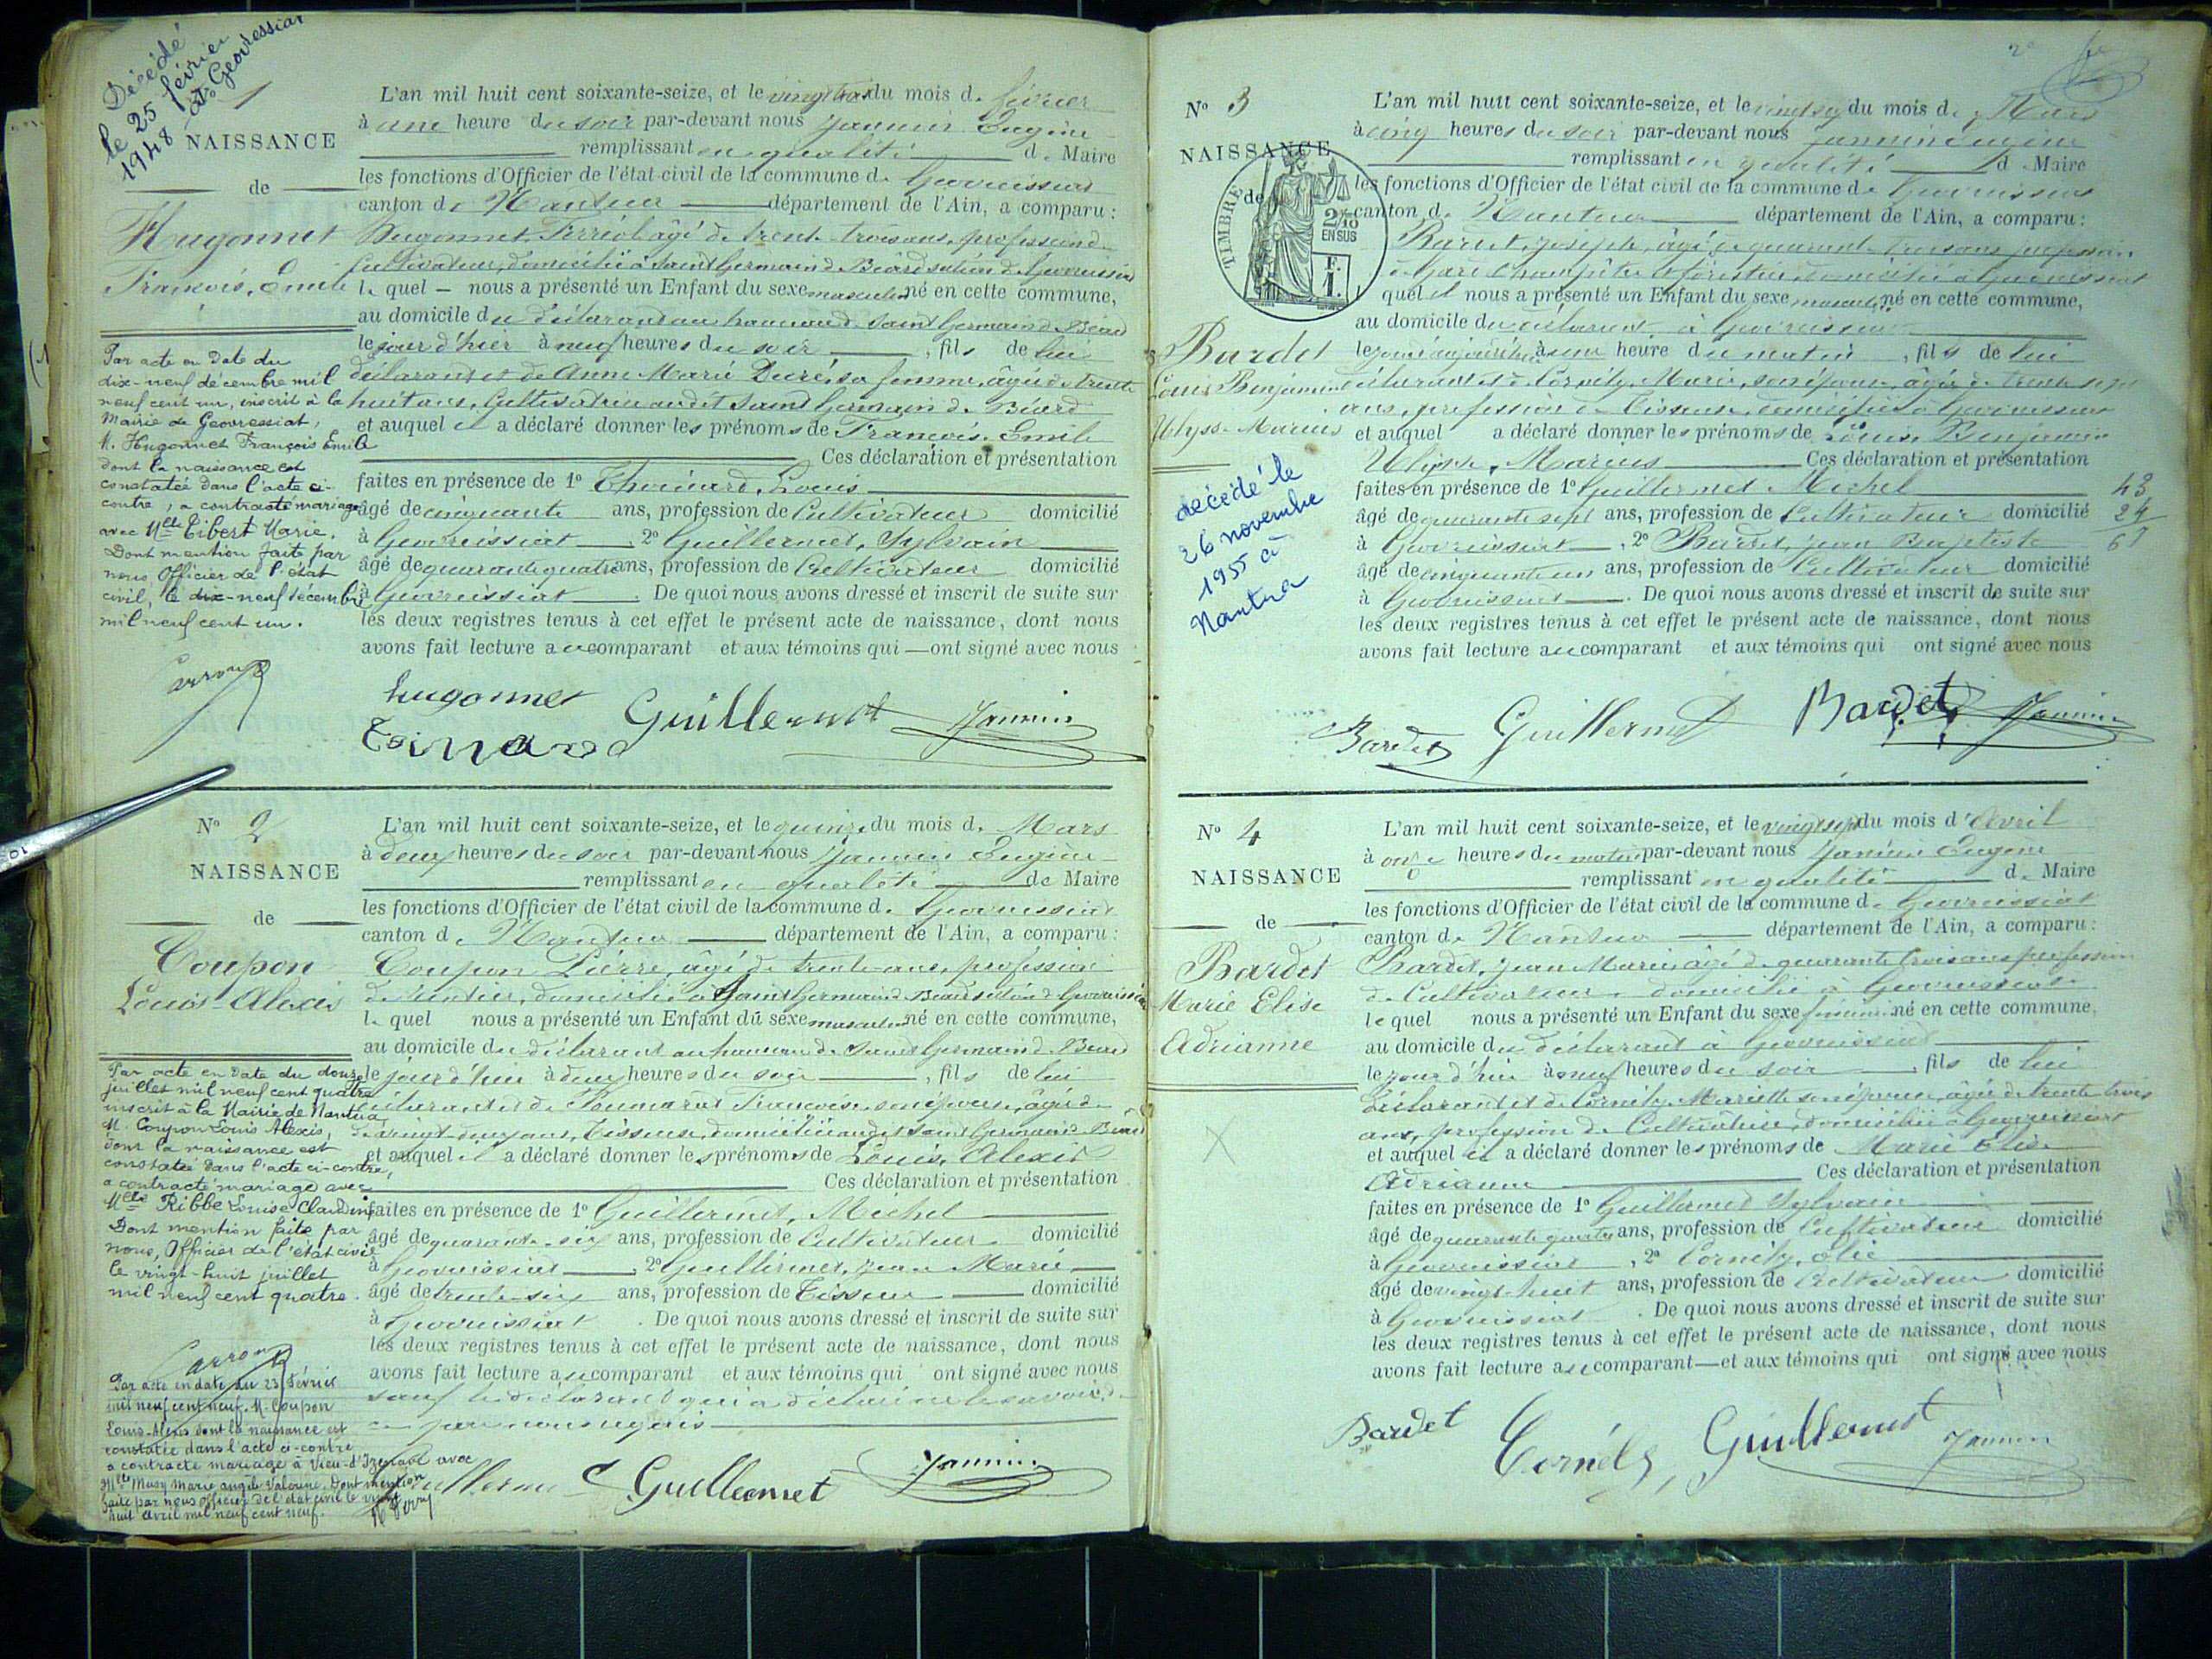 Décédé
le 25 février
1948 à Geovressiat
1
NAISSANCE
de
Hugonnet
François, Emile
Par acte en date du
dix-neuf décembre mil
neuf cent un, inscrit à la
Mairie de Geovressiat,
M. Hugonnet François Emile
dont la naissance est
constatée dans l'acte ci-
contre, a contracté mariage
avec Mlle Tibert Marie.
Dont mention faite par
nous, Officier de l'état
civil, le dix-neuf décembre
mil neuf cent un.
L'an mil huit cent soixante-seize, et le vingt trois du mois de février
à une heure du soir par-devant nous Jannin Eugène
remplissant en qualité de Maire
les fonctions d'Officier de l'état-civil de la commune de Geovreissiat
canton de Nantua département de l'Ain, a comparu :
Hugonnet, Ferréol âgé de trente trois ans, profession de
Cultivateur, domicilié à Saint Germain de Béard section de Geovreissiat
le quel – nous a présenté un Enfant du sexe masculin né en cette commune,
au domicile du déclarant au hameau de Saint Germain de Béard
le jour d'hier à neuf heures du soir , fils de lui
déclarant et de Anne Marie Ducré, sa femme, âgée de trente
huit ans, Cultivatrice audit Saint Germain de Béard
et auquel il a déclaré donner les prénoms de François. Emile
Ces déclaration et présentation
faites en présence de 1° Thoinard, Louis
âgé de cinquante ans, profession de Cultivateur domicilié
à Geovreissiat , 2° Guillermet, Sylvain
âgé de quarante quatre ans, profession de Cultivateur domicilié
à Geovreissiat . De quoi nous avons dressé et inscrit de suite sur
les deux registres tenus à cet effet le présent acte de naissance, dont nous
avons fait lecture au comparant et aux témoins qui — ont signé avec nous
hugonnet Guillermet Jannin
N° 2
NAISSANCE
de
Coupon
Louis-Alexis
Par acte en date du douze
juillet mil neuf cent quatre
inscrit à la Mairie de Nantua
M. Coupon Louis Alexis,
dont la naissance est
constatée dans l'acte ci-contre,
a contracté mariage avec
Mlle Ribbe Louise Claudine
Dont mention faite par
nous, Officier de l'état civil
le vingt-huit juillet
mil neuf cent quatre.
Par acte en date du 23 Février
mil neuf cent neuf. M. Coupon
Louis-Alexis dont la naissance est
constatée dans l'acte ci-contre
a contracté mariage à Vieu-d'Izenave avec
Mlle Musy Marie angèle Valérine. Dont mention
faite par nous officier de l'état civil le vingt
huit avril mil neuf cent neuf.
L'an mil huit cent soixante-seize, et le quinze du mois de Mars
à deux heures du soir par-devant nous Jannin Eugène
remplissant en qualité de Maire
les fonctions d'Officier de l'état civil de la commune de Geovreissiat
canton de Nantua département de l'Ain, a comparu :
Coupon Pierre, âgé de trente ans, profession
de domicilié à Saint Germain de Béard section de Geovreissiat
le quel nous a présenté un Enfant du sexe masculin né en cette commune,
au domicile du déclarant au hameau de Saint Germain de Béard
le jour d'hier à deux heures du soir , fils de lui
déclarant et de Françoise, son épouse, âgée de
vingt deux ans, Tisseuse, domiciliée audit Saint Germain de Béard
et auquel il a déclaré donner les prénoms de Louis, Alexis
Ces déclaration et présentation
faites en présence de 1° Guillermet, Michel
âgé de quarante-six ans, profession de Cultivateur domicilié
à Geovreissiat , 2° Guillermet, Jean Marie
âgé de trente-six ans, profession de Tisseur domicilié
à Geovreissiat . De quoi nous avons dressé et inscrit de suite sur
les deux registres tenus à cet effet le présent acte de naissance, dont nous
avons fait lecture au comparant et aux témoins qui ont signé avec nous
sauf le déclarant qui a déclaré ne le savoir de
ce par nous requis
Guillermet Guillermet Jannin
N° 3
NAISSANCE
de
TIMBRE
2/10
EN SUS
F.
1.
Bardet
Louis Benjamin
Ulysse-Marius
décédé le
26 novembre
1955 à
Nantua
L'an mil huit cent soixante-seize, et le du mois de Mars
à cinq heures du soir par-devant nous Jannin Eugène
remplissant en qualité de Maire
les fonctions d'Officier de l'état civil de la commune de Geovreissiat
canton de Nantua département de l'Ain, a comparu :
Bardet, Joseph, âgé de quarante trois ans profession
de Garde Champêtre et forestier, domicilié à Geovreissiat
quel il nous a présenté un Enfant du sexe masculin né en cette commune,
au domicile du déclarant à Geovreissiat
le jour d'aujourd'hui à une heure du matin , fils de lui
déclarant et de Cornély, Marie, son épouse, âgée de trente sept
ans, profession de Tisseuse, domiciliée à Geovreissiat
et auquel a déclaré donner les prénoms de Louis, Benjamin
Ulysse, Marius Ces déclaration et présentation
faites en présence de 1° Guillermet Michel
âgé de quarante sept ans, profession de Cultivateur domicilié
à Geovreissiat , 2° Bardet, Jean Baptiste
âgé de cinquante un ans, profession de Cultivateur domicilié
à Geovreissiat . De quoi nous avons dressé et inscrit de suite sur
les deux registres tenus à cet effet le présent acte de naissance, dont nous
avons fait lecture au comparant et aux témoins qui ont signé avec nous
43
24
67
Bardet Guillermet Bardet Jannin
N° 4
NAISSANCE
de
Bardet
Marie Elise
Adrianne
L'an mil huit cent soixante-seize, et le vingt sept du mois d'Avril
à onze heures du matin par-devant nous Jannin Eugène
remplissant en qualité de Maire
les fonctions d'Officier de l'état civil de la commune de Geovreissiat
canton de Nantua département de l'Ain, a comparu :
Bardet, Jean Marie, âgé de quarante trois ans profession
de Cultivateur, domicilié à Geovreissiat
le quel nous a présenté un Enfant du sexe féminin né en cette commune,
au domicile du déclarant à Geovreissiat
le jour d'hier à neuf heures du soir , fils de lui
Déclarant et de Cornély Mariette son épouse, âgée de trente trois
ans, profession de Cultivatrice, domiciliée à Geovreissiat
et auquel il a déclaré donner les prénoms de Marie Elise
Adrianne Ces déclaration et présentation
faites en présence de 1° Guillermet Sylvain
âgé de quarante quatre ans, profession de Cultivateur domicilié
à Geovreissiat , 2° Cornély, Elie
âgé de vingt-huit ans, profession de Cultivateur domicilié
à Geovreissiat . De quoi nous avons dressé et inscrit de suite sur
les deux registres tenus à cet effet le présent acte de naissance, dont nous
avons fait lecture au comparant—et aux témoins qui ont signé avec nous
Bardet Cornély, Guillermet Jannin